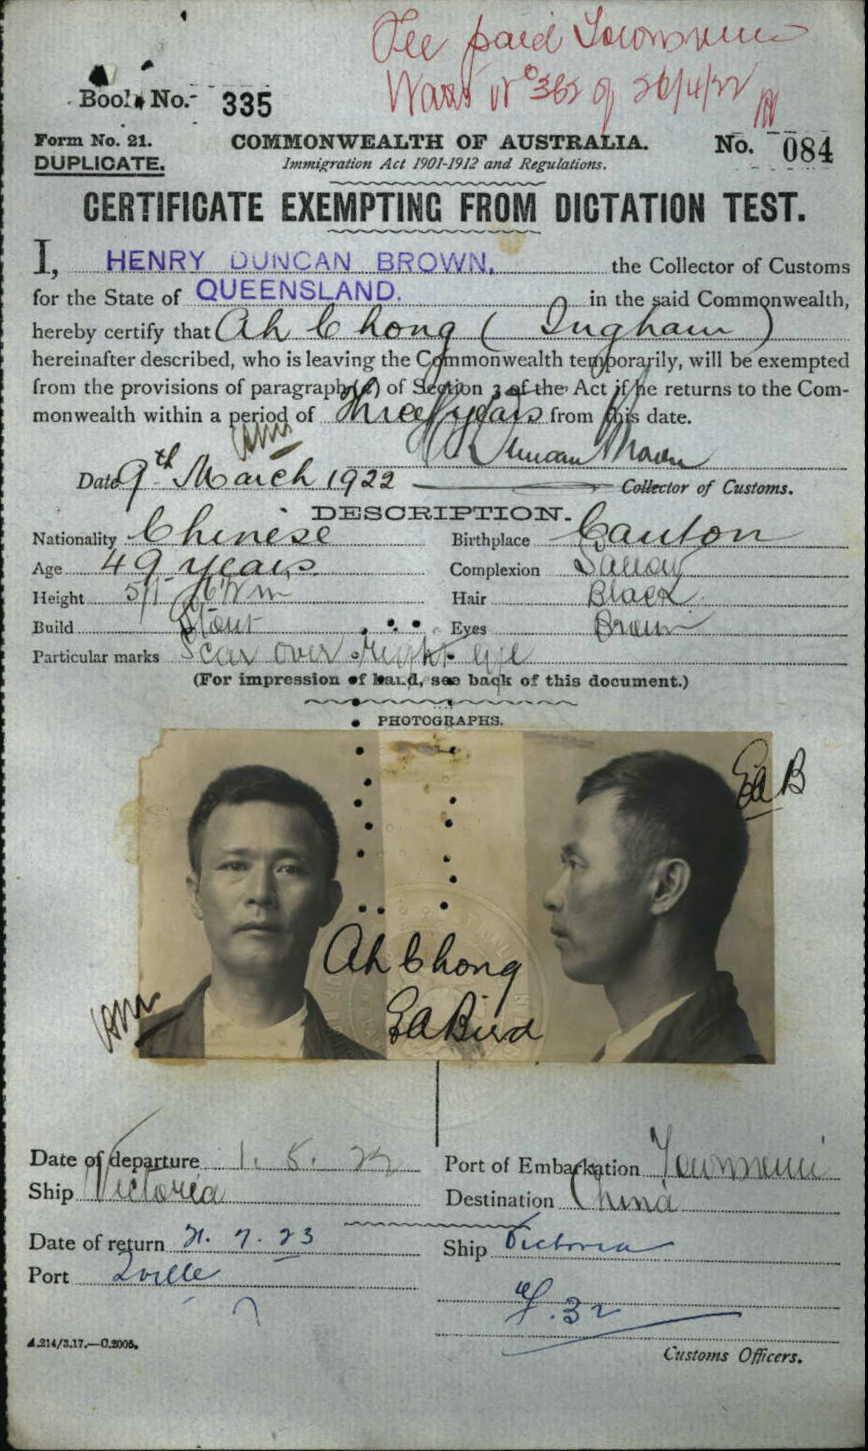 Fee paid Townsville
No 362 of 26/4/22
Book No. 335
Form No. 21.
COMMONWEALTH OF AUSTRALIA.
No. 084
DUPLICATE.
Immigration Act 1901-1912 and Regulations.
CERTIFICATE EXEMPTING FROM DICTATION TEST.
I, HENRY DUNCAN BROWN, the Collector of Customs
for the State of QUEENSLAND. in the said Commonwealth,
hereby certify that Ah Chong (Ingham)
hereinafter described, who is leaving the Commonwealth temporarily, will be exempted
from the provisions of paragraph (a) of Section 3 of the Act if he returns to the Com-
monwealth within a period of three years from this date.
H Duncan Brown
Date 9th March 1922 Collector of Customs.
DESCRIPTION.
Nationality Chinese Birthplace Canton
Age 49 years Complexion Sallow
Height Hair Black
Build Stout Eyes Brown
Particular marks Scar over right eye
(For impression of hand, see back of this document.)
PHOTOGRAPHS.
EAB
Ah Chong
EA Bird
Date of departure 1. 5. 22 Port of Embarkation Townsville
Ship Victoria Destination China
Date of return 21. 7. 23 Ship Victoria
Port Tville
32
A.214/3.17.—C.2005.
Customs Officers.